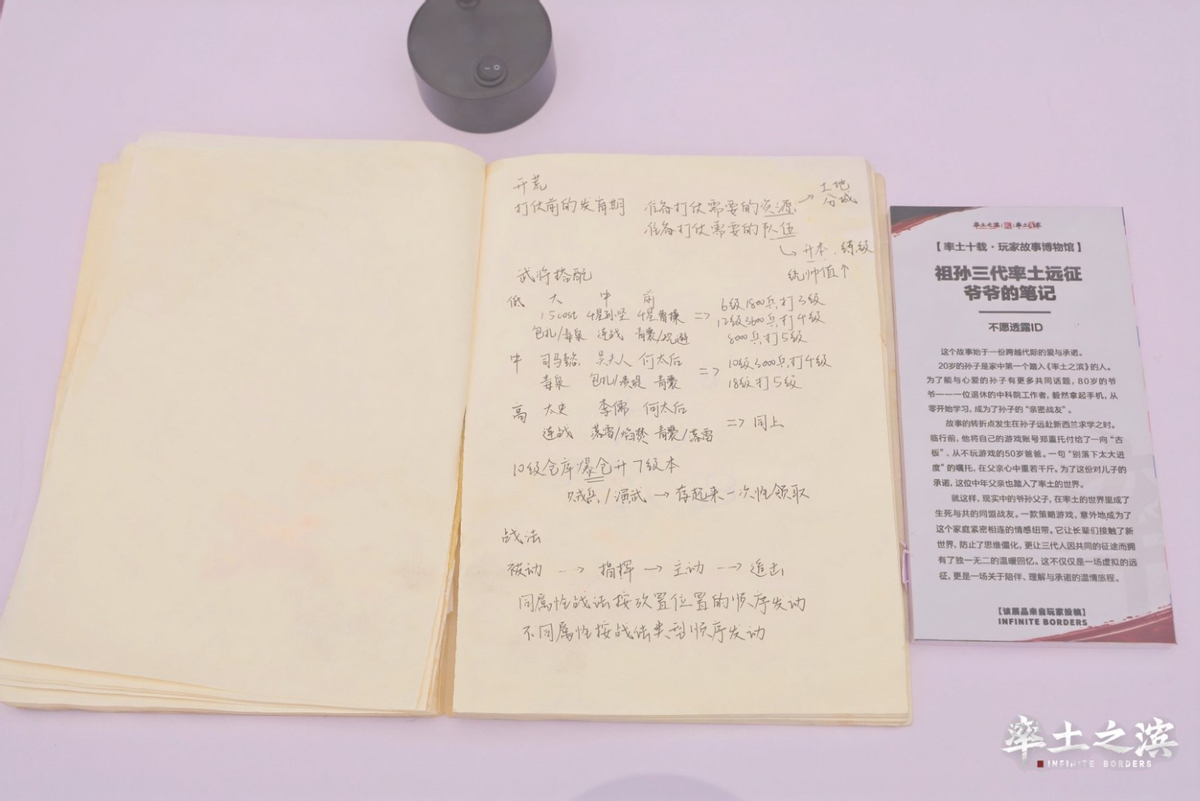 开荒
打仗前的发育期 准备打仗需要的资源 → 土地 分城
准备打仗需要的队伍
↳ 升本、练级
统帅值↑
武将搭配
低 大 中 前
1.5cost 4星孙坚 4星曹操 => 6级1800兵打3级
12级3600兵打4级
包扎/毒泉 连战 青囊/规避 8000兵打5级
中 司马懿 吴夫人 何太后 => 10级3000兵打4级
毒泉 包扎 青囊 18级打5级
高 大史 李儒 何太后 => 同上
连战 落雷/焰焚 青囊/落雷
10级仓库爆仓升7级本
贼兵/演武 → 存起来一次性领取
战法
被动 --> 指挥 → 主动 --> 追击
同属性战法按放置位置的顺序发动
不同属性按战法类型顺序发动
率土之滨
【率土十载·玩家故事博物馆】
祖孙三代率土远征
爷爷的笔记
不愿透露ID
这个故事始于一份跨越代际的爱与承诺。
20岁的孙子是家中第一个踏入《率土之滨》的人。
为了能与心爱的孙子有更多共同话题,80岁的爷
爷——一位退休的中科院工作者,毅然拿起手机,从
零开始学习,成为了孙子的“亲密战友”。
故事的转折点发生在孙子远赴新西兰求学之时。
临行前,他将自己的游戏账号郑重托付给了一向“古
板”、从不玩游戏的50岁爸爸。一句“别落下太大进
度”的嘱托,在父亲心中重若千斤。为了这份对儿子的
承诺,这位中年父亲也踏入了率土的世界。
就这样,现实中的爷孙父子,在率土的世界里成了
生死与共的同盟战友。一款策略游戏,意外地成为了
这个家庭紧密相连的情感纽带。它让长辈们接触了新
世界,防止了思维僵化,更让三代人因共同的征途而拥
有了独一无二的温暖回忆。这不仅仅是一场虚拟的远
征,更是一场关于陪伴、理解与承诺的温情旅程。
【该展品来自玩家投稿】
INFINITE BORDERS
率土之滨
INFINITE BORDERS